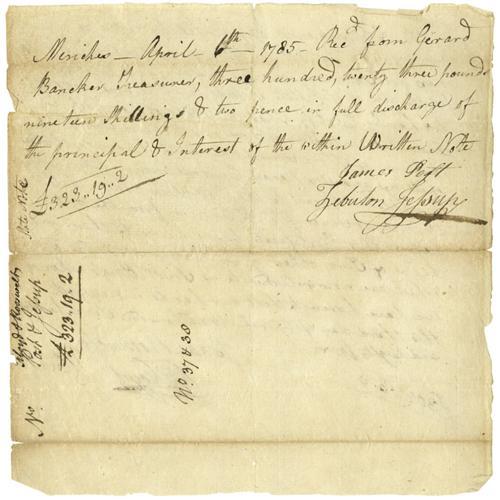 Meriches — April — 6th — 1785 — Recd from Gerard
Bancker Treasurer, three hundred, twenty three pounds
nineteen Shillings & two pence in full discharge of
the principal & Interest of the within Written Note
£323..19..2
James Post
Zebulon Jessup
State Note
Lloyd & Roosevelts
Post & Jessup
£323.19.2
No.
No 37 & 38